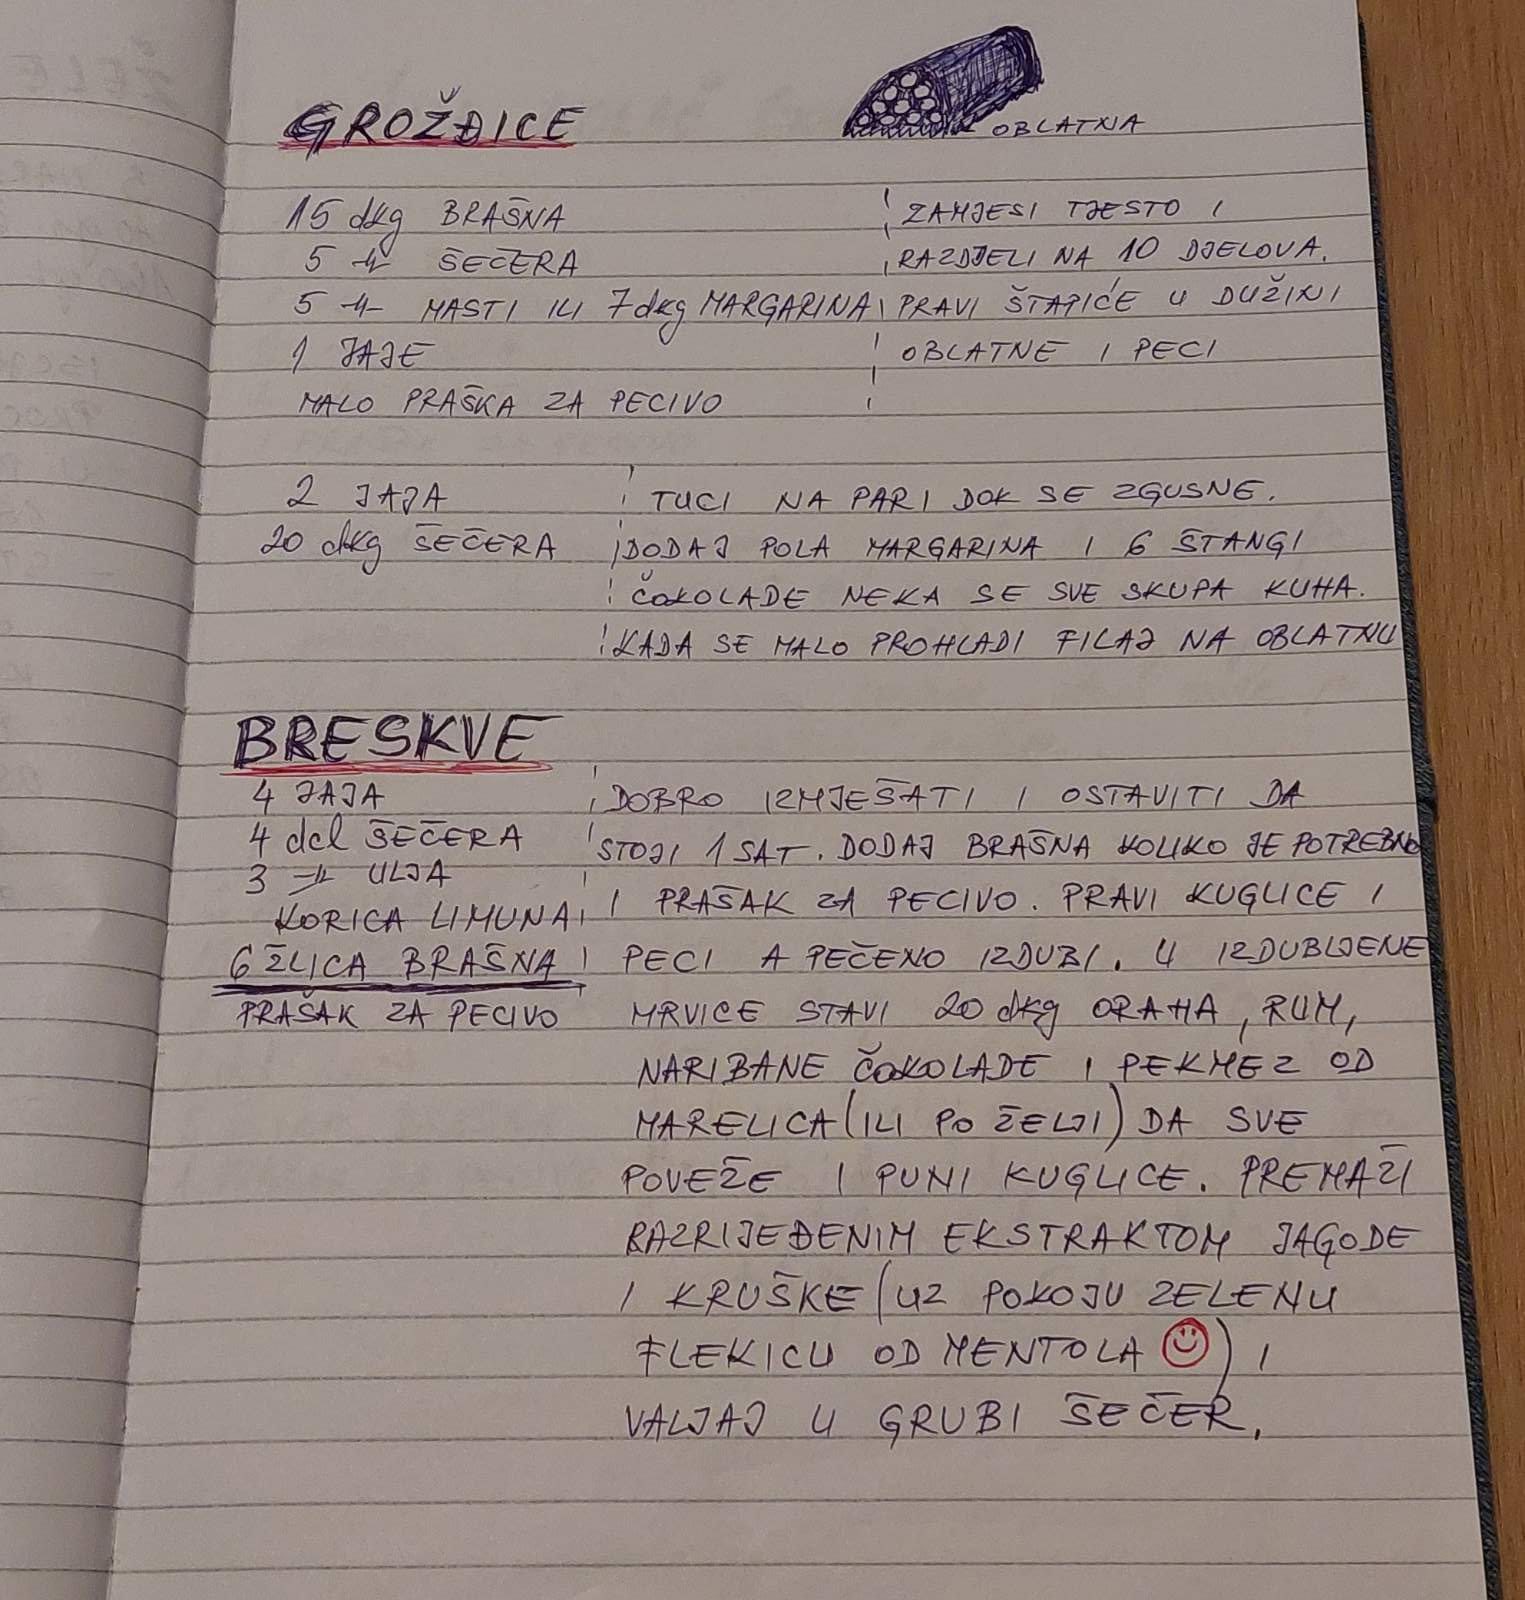 GROŽĐICE
OBLATNA
15 dkg BRAŠNA
5 -||- ŠEČERA
5 -||- MASTI ILI 7 dkg MARGARINA
1 JAJE
MALO PRAŠKA ZA PECIVO
ZAMJESI TJESTO I
RAZDJELI NA 10 DJELOVA.
PRAVI ŠTAPIĆE U DUŽINI
OBLATNE I PECI
2 JAJA
20 dkg ŠEČERA
TUCI NA PARI DOK SE ZGUSNE.
DODAJ POLA MARGARINA I 6 ŠTANGI
ČOKOLADE NEKA SE SVE SKUPA KUHA.
KADA SE MALO PROHLADI FILAJ NA OBLATNU
BRESKVE
4 JAJA
4 dcl ŠEČERA
3 -||- ULJA
KORICA LIMUNA
6 ŽLICA BRAŠNA
PRAŠAK ZA PECIVO
DOBRO IZMJEŠATI I OSTAVITI DA
STOJI 1 SAT. DODAJ BRAŠNA KOLIKO JE POTREBNO
I PRAŠAK ZA PECIVO. PRAVI KUGLICE I
PECI A PEČENO IZDUBI. U IZDUBLJENE
MRVICE STAVI 20 dkg ORAHA, RUM,
NARIBANE ČOKOLADE I PEKMEZ OD
MARELICA (ILI PO ŽELJI) DA SVE
POVEŽE I PUNI KUGLICE. PREMAŽI
RAZRIJEĐENIM EKSTRAKTOM JAGODE
I KRUŠKE (UZ POKOJU ZELENU
FLEKICU OD MENTOLA ☺) I
VALJAJ U GRUBI ŠEČER.